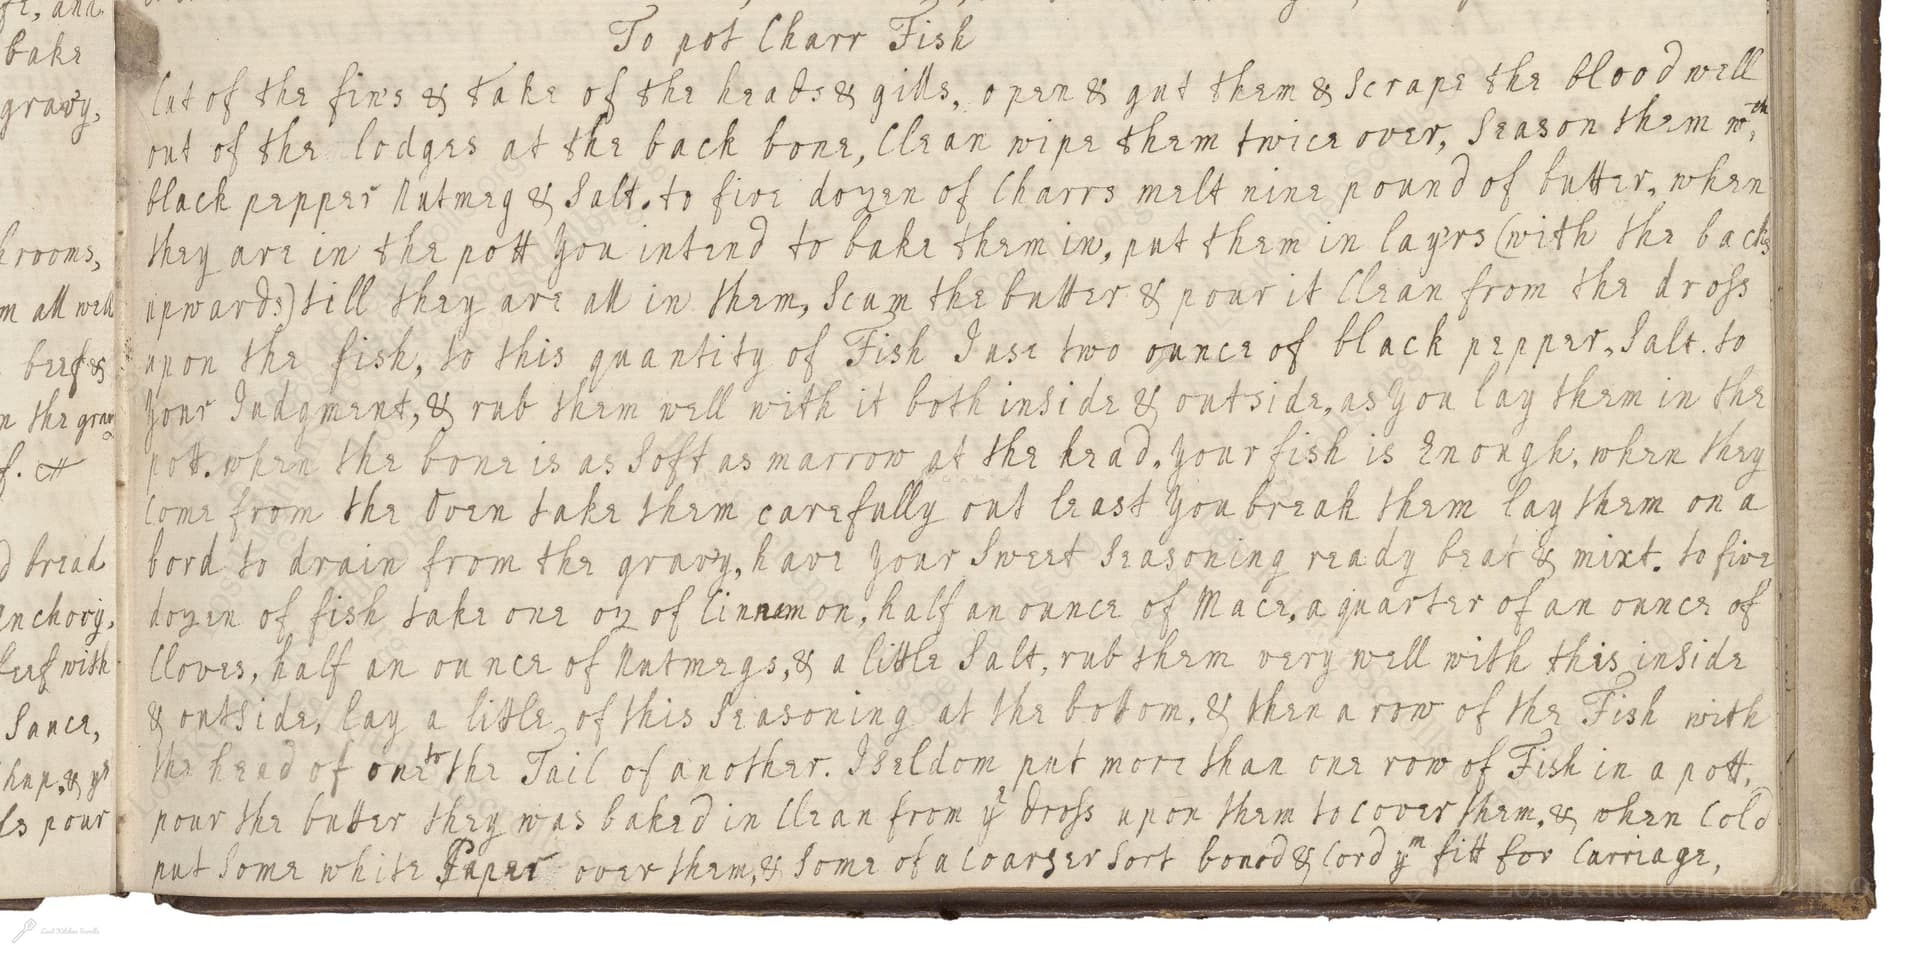 To pot Charr Fish
Cut of the fins & take of the heads & gills, open & gut them & scrape the blood well
out of the lodges at the back bone, Clean wipe them twice over, Season them wth
black pepper Nutmeg & Salt. to five dozen of Charrs melt nine pound of butter, when
they are in the pott you intend to bake them in, put them in layrs (with the backs
upwards) till they are all in them, Scum the butter & pour it Clean from the dross
upon the fish, to this quantity of Fish I use two ounce of black pepper, Salt. to
your Judgment, & rub them well with it both inside & outside, as you lay them in the
pott. when the bone is as Soft as marrow at the head, your fish is Enough, when they
Come from the Oven take them carefully out least you break them lay them on a
bord to drain from the gravy, have your Sweet Seasoning ready beat & mixt. to five
dozen of fish take one oz of Cinnemon, half an ounce of Mace, a quarter of an ounce of
Cloves, half an ounce of Nutmegs, & a little Salt, rub them very well with this inside
& outside, lay a little of this Seasoning at the bottom, & then a row of the Fish with
the head of one to the Tail of another. I seldom put more than one row of Fish in a pott,
pour the butter they was baked in Clean from ye dross upon them to cover them, & when Cold
put Some white Paper over them, & Some of a coarser Sort bound & Cord ym fitt for Carriage,
bake
gravy,
krooms,
m all well
beef &
n the gravy
f.
d bread
anchovy,
beef with
Sauce,
& yr
ls pour
Lost Kitchen Scrolls
LostKitchenScrolls.o